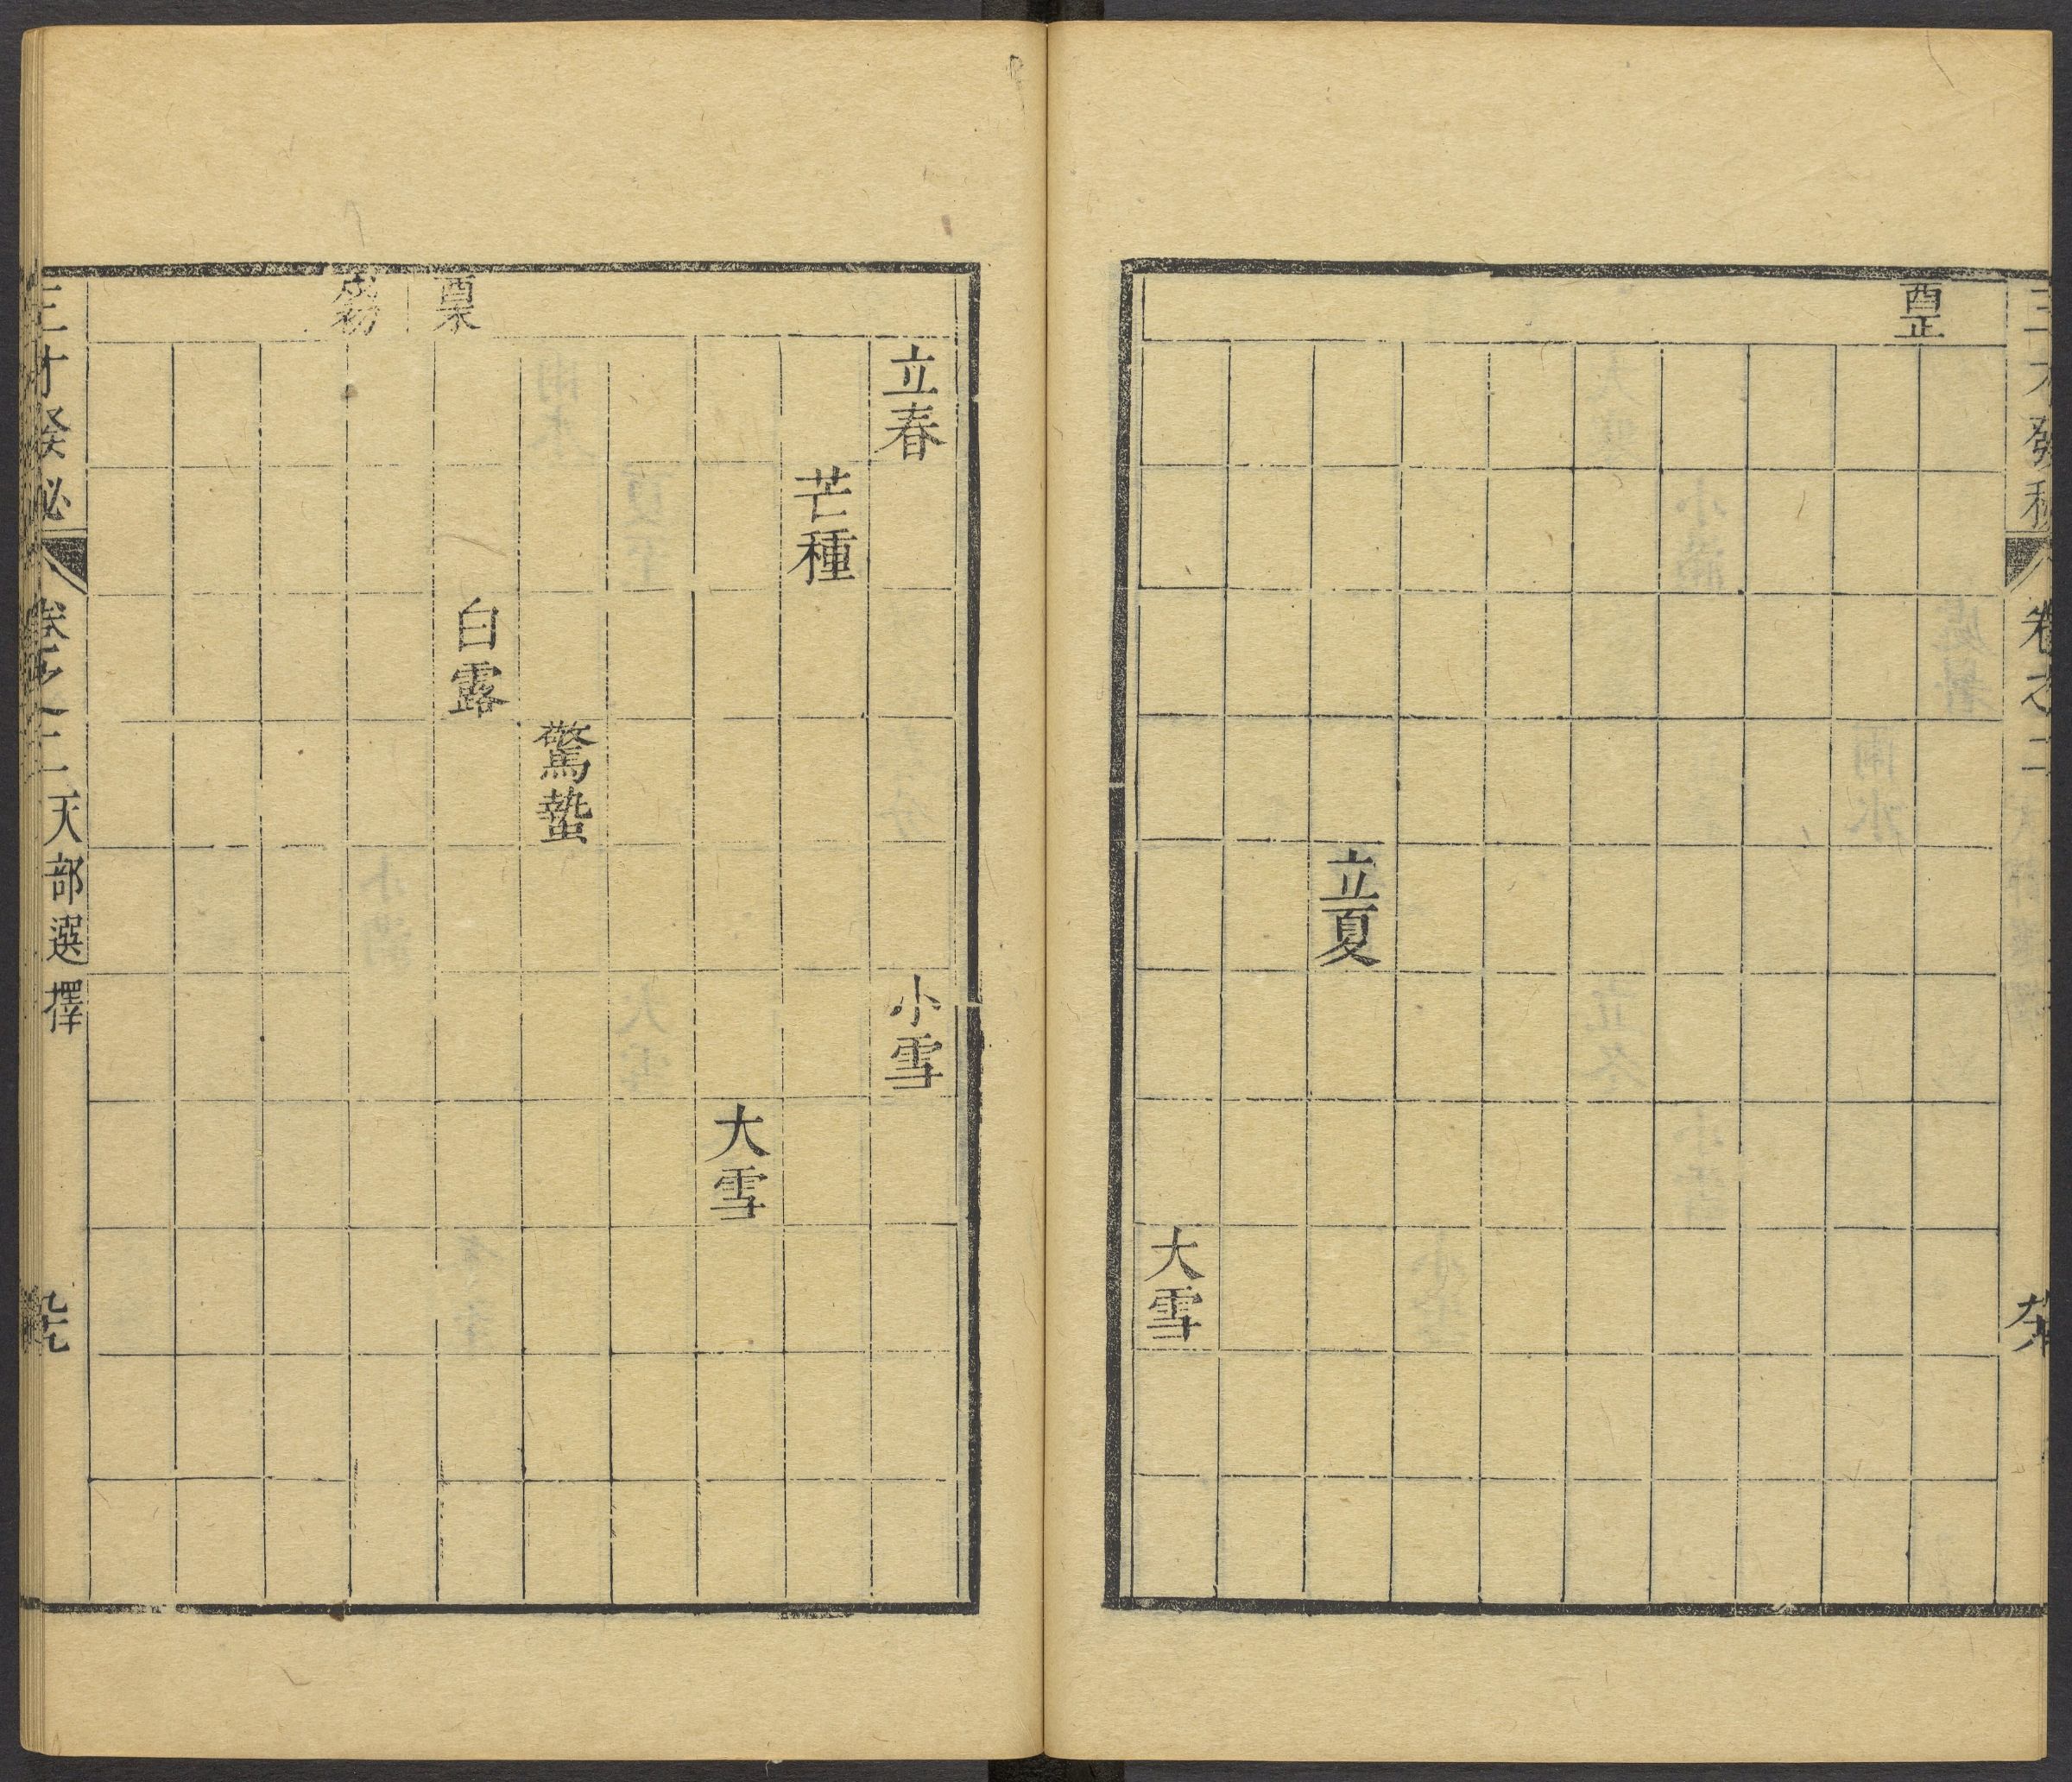 三才發秘 卷之二
酉正
立夏
大雪
立春
小雪
芒種
大雪
驚蟄
酉末
白露
戌初
三才發秘 卷之二 天部選擇